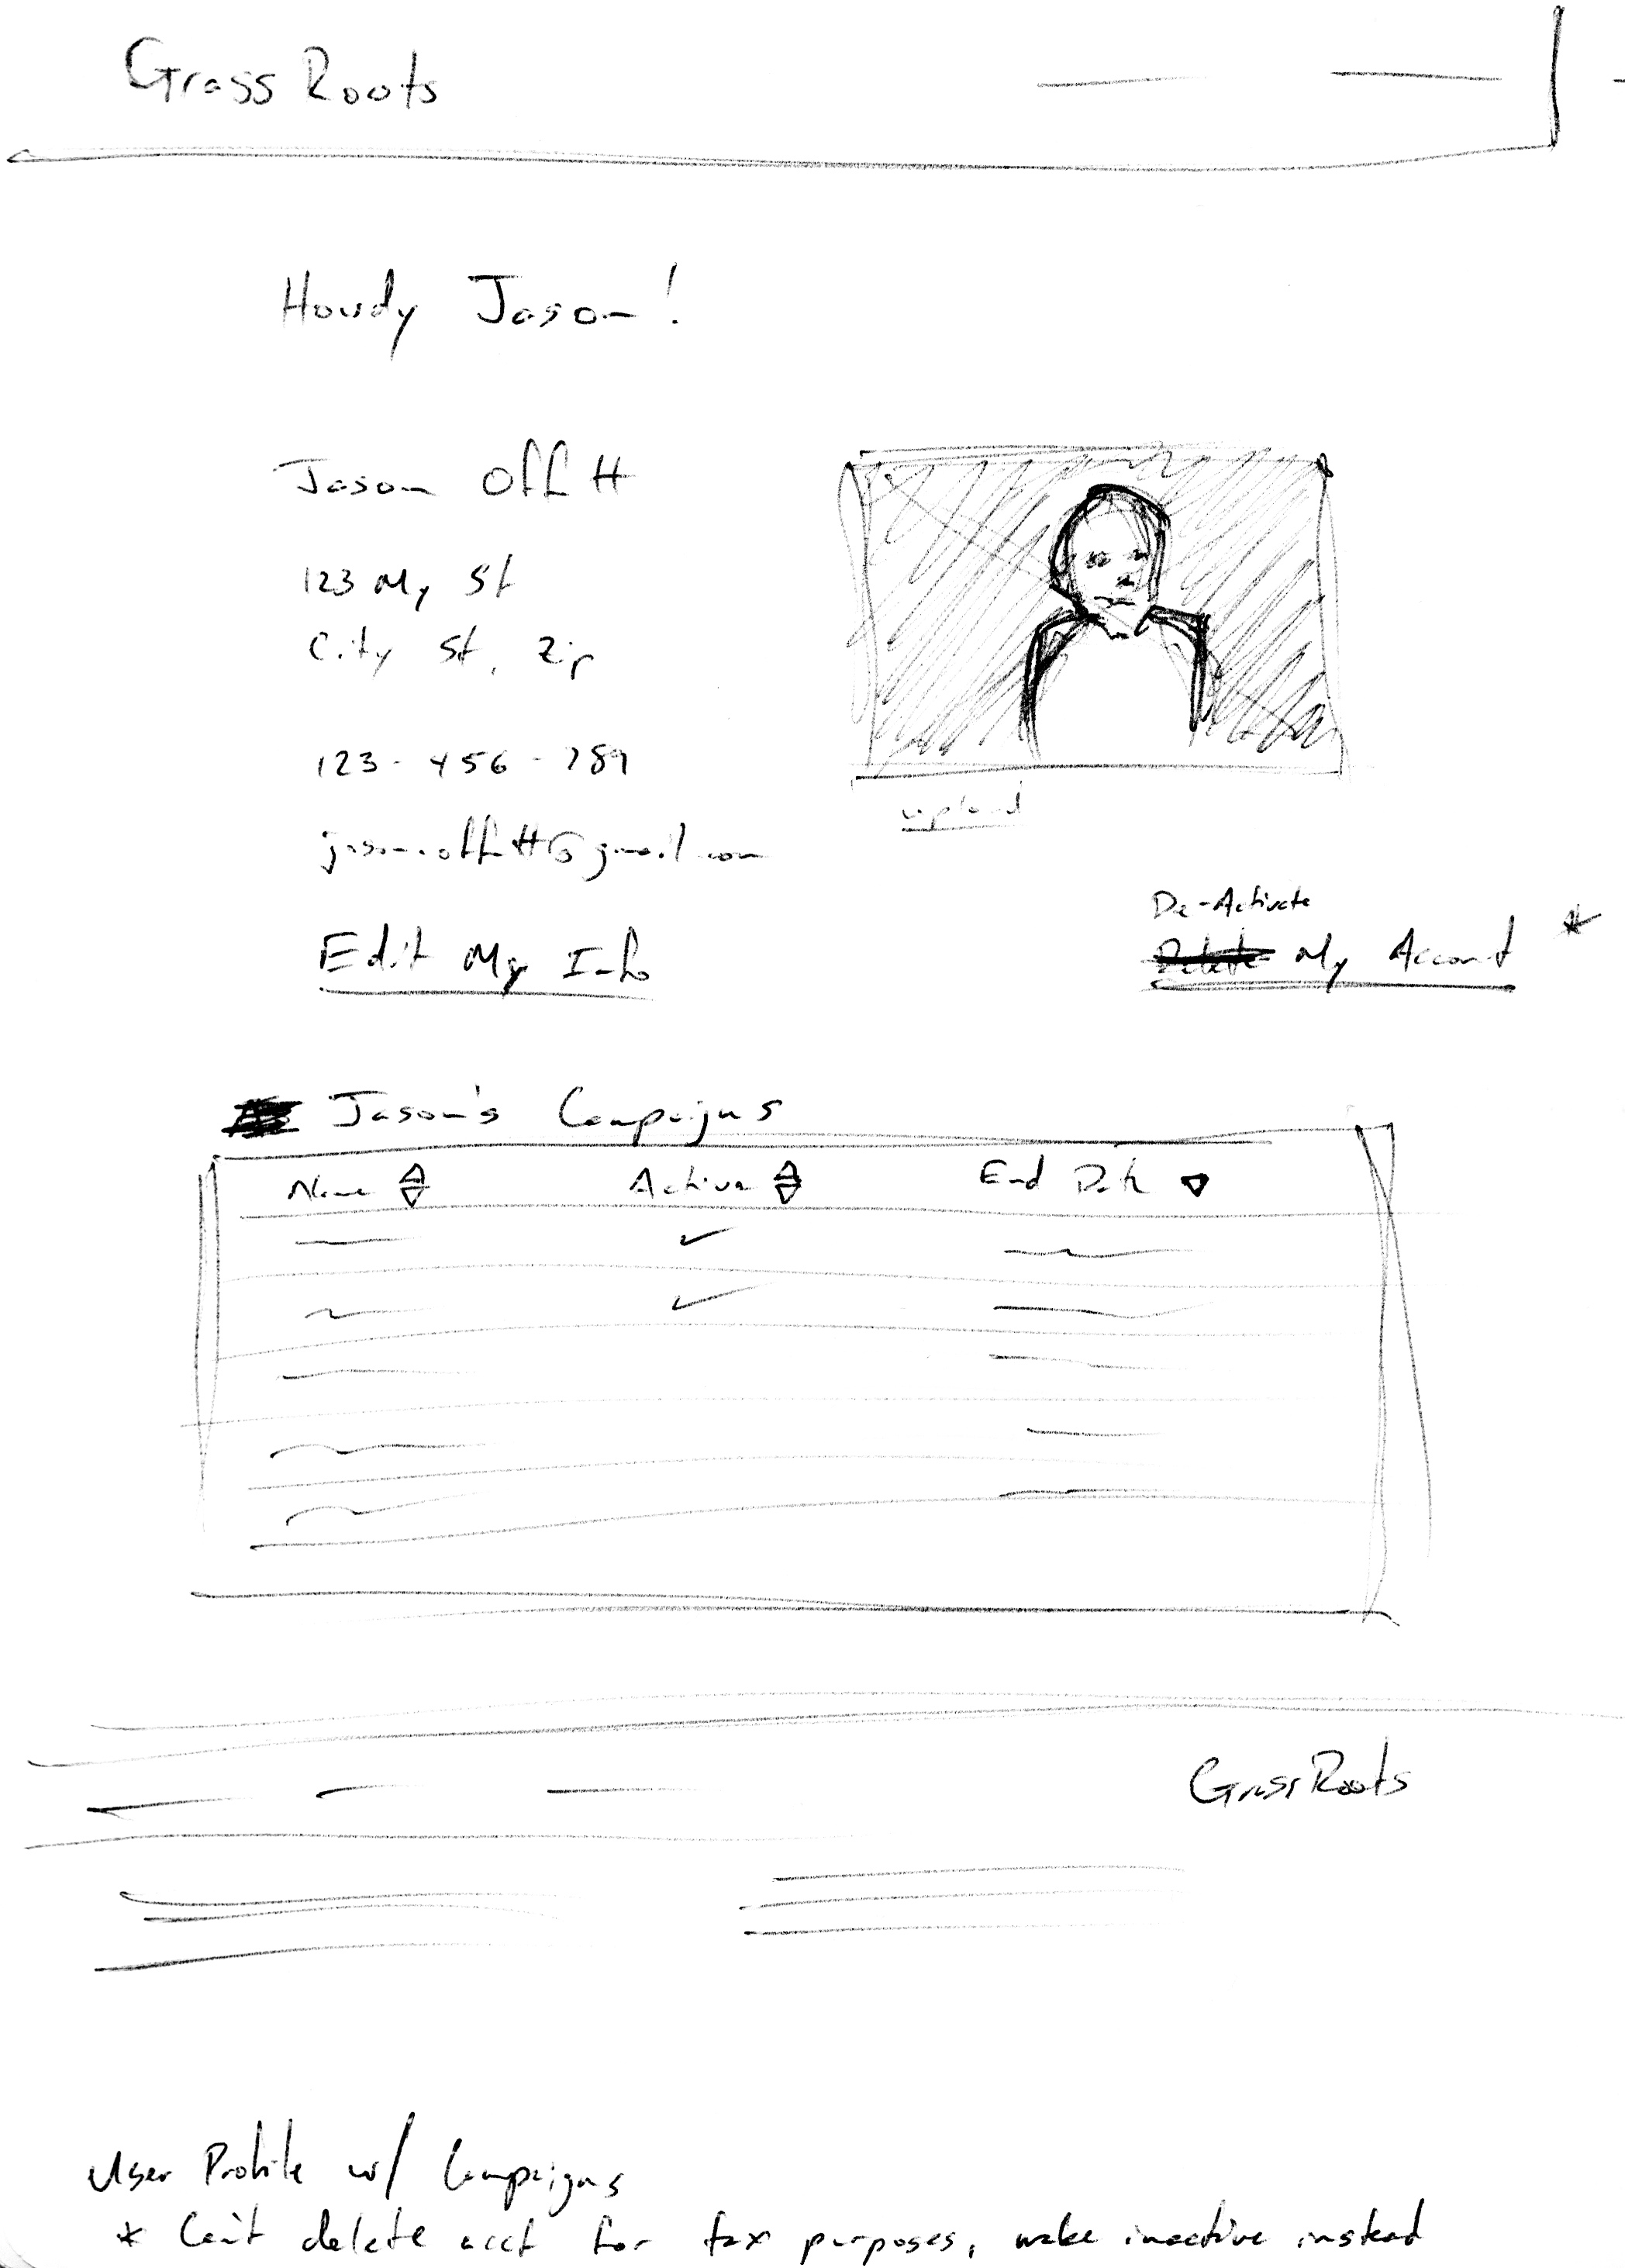 Grass Roots
Howdy Jason!
Jason Offitt
123 My St
City St, Zip
123-456-789
jason.offitt@gmail.com
upload
De-Activate
Edit My Info
Delete My Account *
Jason's Campaigns
Name Active End Date
GrassRoots
User Profile w/ Campaigns
* Can't delete acct for tax purposes, make inactive instead